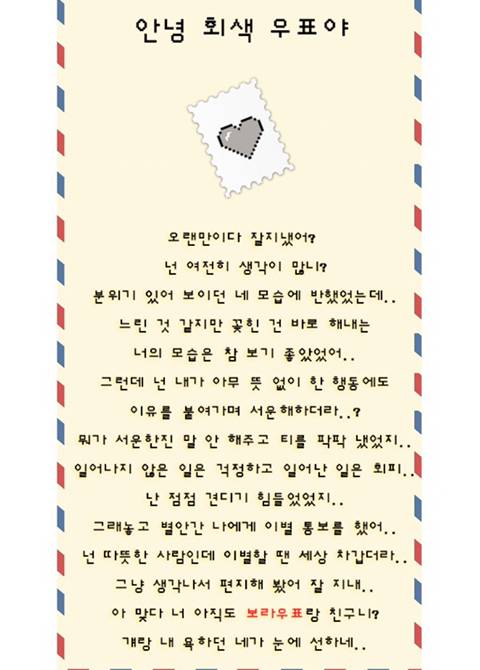 안녕 회색 우표야
오랜만이다 잘지냈어?
넌 여전히 생각이 많니?
분위기 있어 보이던 네 모습에 반했었는데..
느린 것 같지만 꽂힌 건 바로 해내는
너의 모습은 참 보기 좋았었어..
그런데 넌 내가 아무 뜻 없이 한 행동에도
이유를 붙여가며 서운해하더라..?
뭐가 서운한진 말 안 해주고 티를 팍팍 냈었지..
일어나지 않은 일은 걱정하고 일어난 일은 회피..
난 점점 견디기 힘들었었지..
그래놓고 별안간 나에게 이별 통보를 했어..
넌 따뜻한 사람인데 이별할 땐 세상 차갑더라..
그냥 생각나서 편지해 봤어 잘 지내..
아 맞다 너 아직도 보라우표랑 친구니?
걔랑 내 욕하던 네가 눈에 선하네..